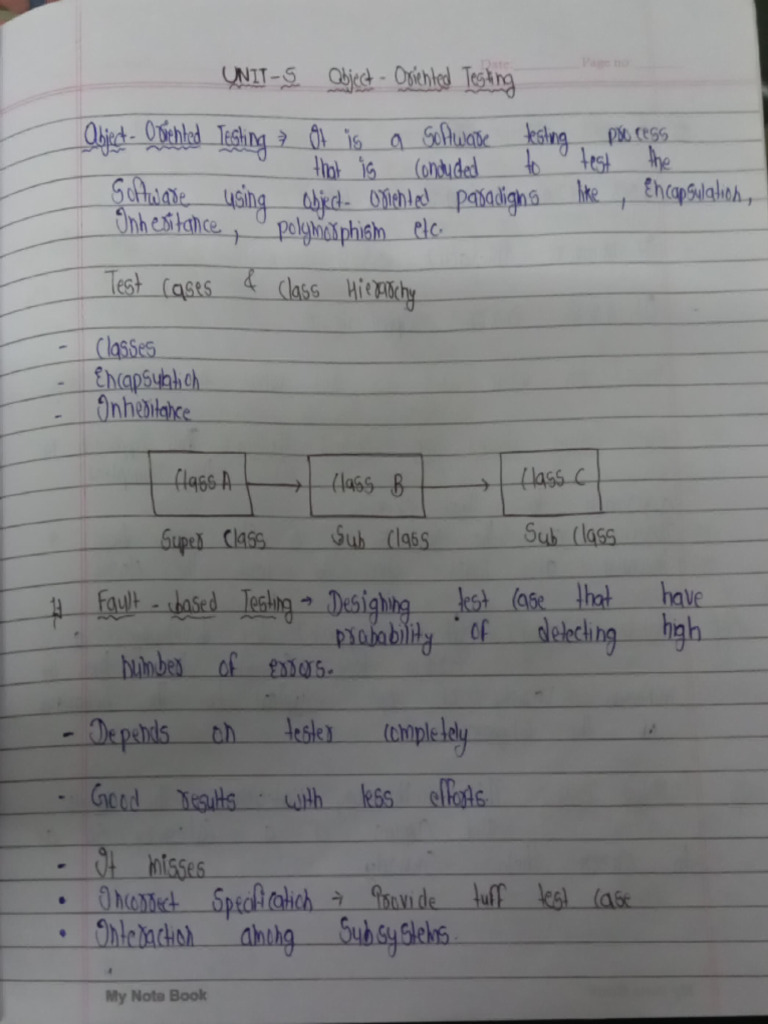 Date Page no
UNIT-5 Object-Oriented Testing
Object-Oriented Testing → It is a Software testing process
that is conduded to test the
Software using object-oriented paradigms like, Encapsulation,
Inheritance, polymorphism etc.
Test Cases & Class Hierarchy
- Classes
- Encapsulation
- Inheritance
Class A → Class B → Class C
Super Class Sub Class Sub Class
# Fault-based Testing → Designing test case that have
probability of detecting high
number of errors.
- Depends on tester completely
- Good results with less efforts.
- It misses
• Incorrect Specification → Provide tuff test case
• Interaction among Subsystems.
My Note Book